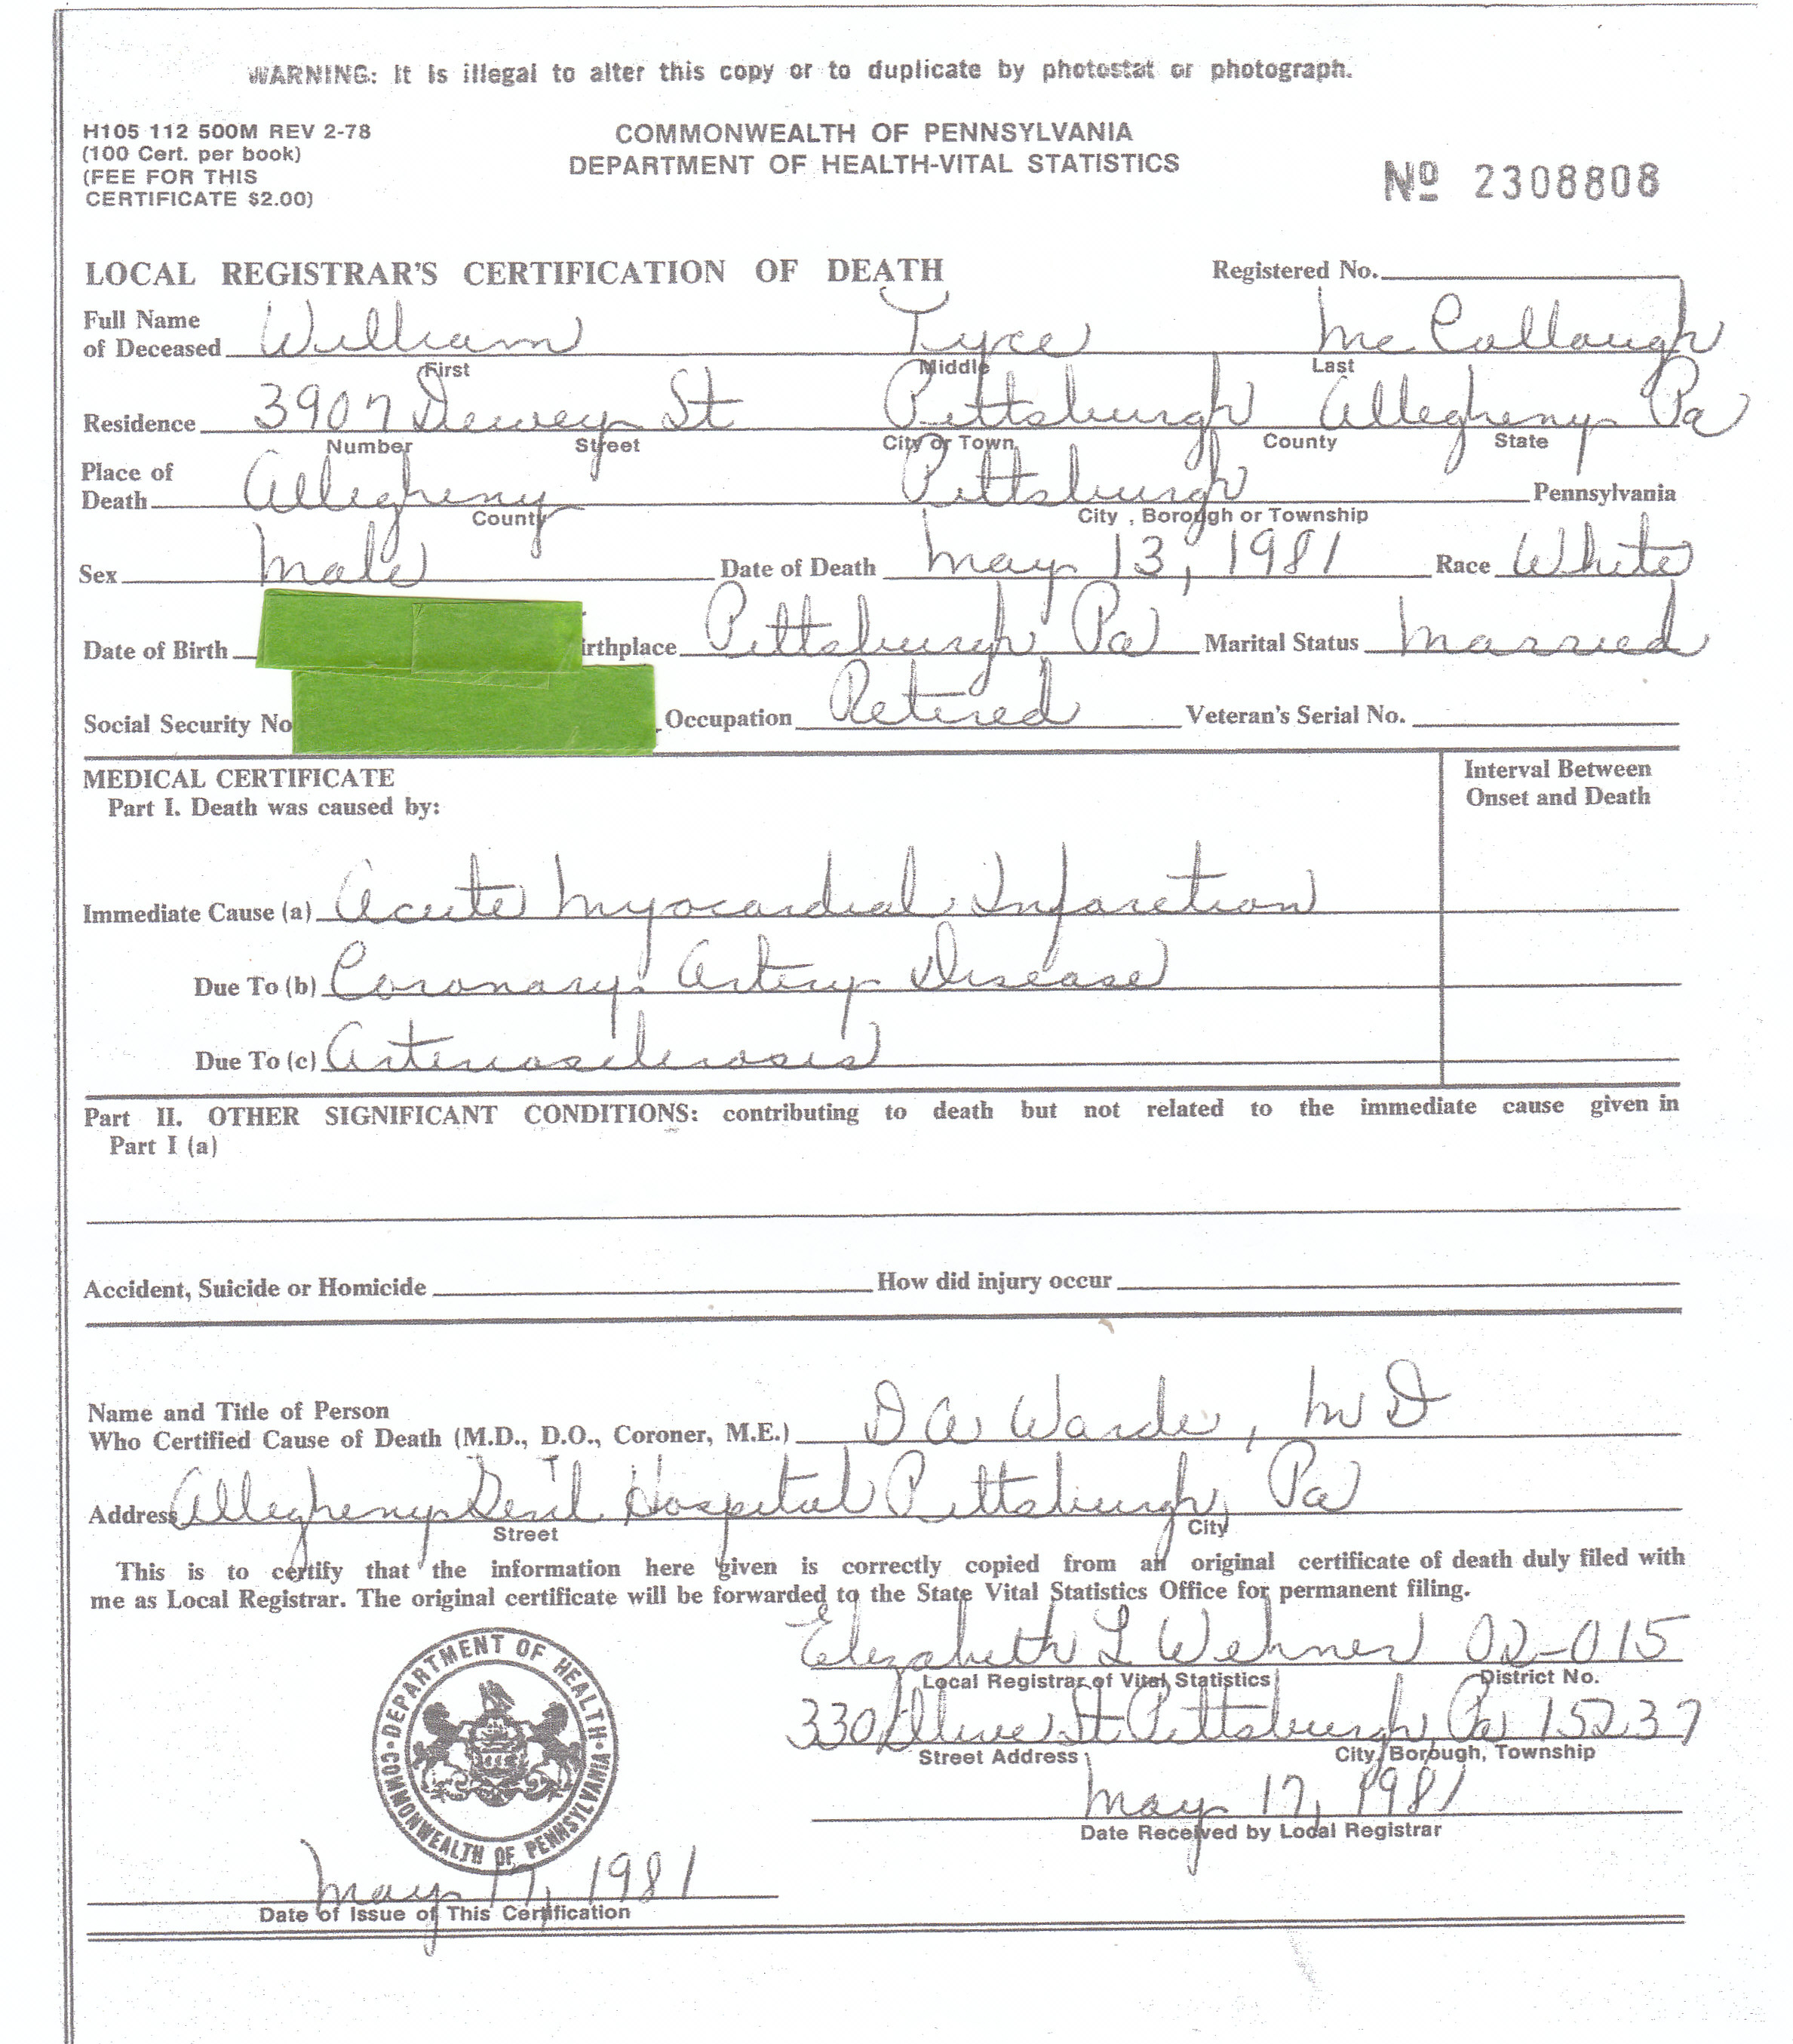 WARNING: It is illegal to alter this copy or to duplicate by photostat or photograph.
H105 112 500M REV 2-78
(100 Cert. per book)
(FEE FOR THIS
CERTIFICATE $2.00)
COMMONWEALTH OF PENNSYLVANIA
DEPARTMENT OF HEALTH-VITAL STATISTICS
Nº 2308808
LOCAL REGISTRAR'S CERTIFICATION OF DEATH Registered No.
Full Name
of Deceased William Tyrce McCollough
First Middle Last
Residence 3907 Dewey St Pittsburgh Allegheny Pa
Number Street City or Town County State
Place of
Death Allegheny Pittsburgh Pennsylvania
County City, Borough or Township
Sex Male Date of Death May 13, 1981 Race White
Date of Birth irthplace Pittsburgh Pa Marital Status Married
Social Security No Occupation Retired Veteran's Serial No.
MEDICAL CERTIFICATE
Part I. Death was caused by:
Interval Between
Onset and Death
Immediate Cause (a) Acute Myocardial Infarction
Due To (b) Coronary Artery Disease
Due To (c) Arteriosclerosis
Part II. OTHER SIGNIFICANT CONDITIONS: contributing to death but not related to the immediate cause given in
Part I (a)
Accident, Suicide or Homicide How did injury occur
Name and Title of Person
Who Certified Cause of Death (M.D., D.O., Coroner, M.E.) D W Warde, MD
Address Allegheny Gen'l Hospital Pittsburgh, Pa
Street City
This is to certify that the information here given is correctly copied from an original certificate of death duly filed with
me as Local Registrar. The original certificate will be forwarded to the State Vital Statistics Office for permanent filing.
Elizabeth L Wehner 02-015
Local Registrar of Vital Statistics District No.
330 St Pittsburgh Pa 15237
Street Address City, Borough, Township
May 17, 1981
Date Received by Local Registrar
DEPARTMENT OF HEALTH
COMMONWEALTH OF PENNSYLVANIA
May 17, 1981
Date of Issue of This Certification